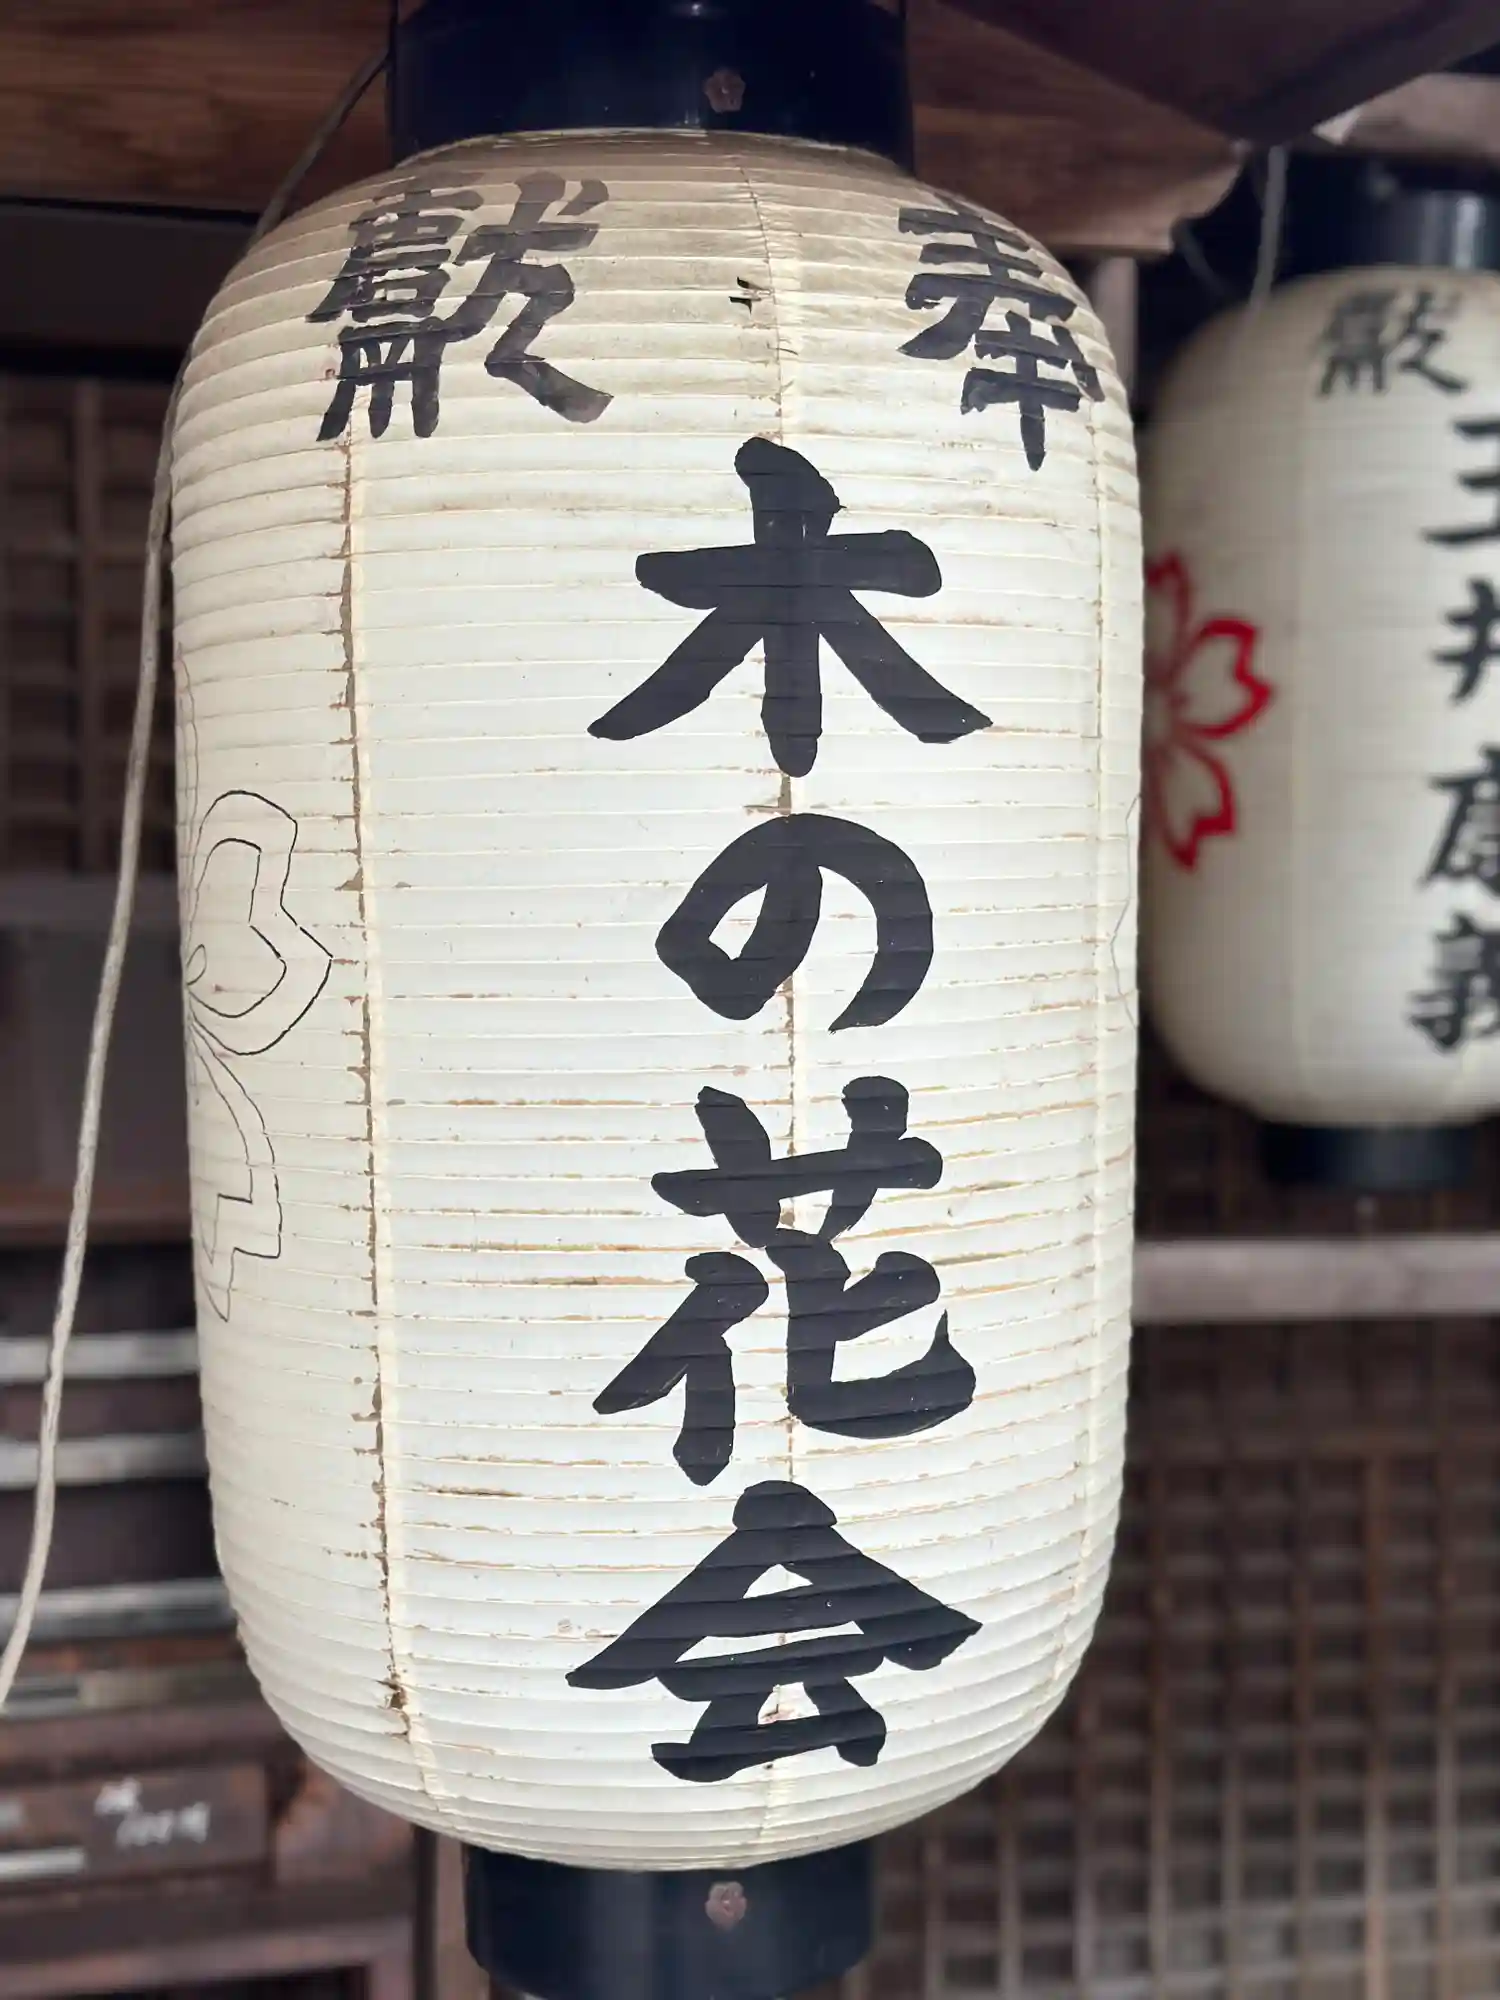 奉獻
木の花会
獻
玉井康義